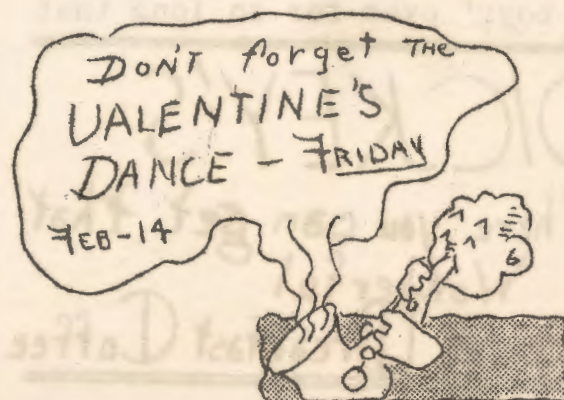 DON'T forget THE
VALENTINE'S
DANCE - FRIDAY
FEB-14